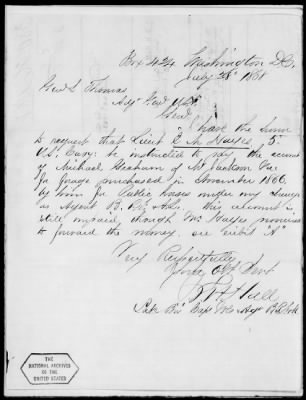 Box 424 Washington D.C.
July 28th 1868
Genl L Thomas
Adjt Genl U.S.A.
Genl
I have the honor
to request that Lieut E M Hayes 5th
U.S. Cavy: be instructed to pay the account
of Michael Graham of Mt Jackson Va
for forage purchased in November 1866
by him for Public horses under my charge
as Agent B. R. F & A.L. this account is
still unpaid, though Mr Hayes promises
to forward the money. see exhibit "A"
Very Respectfully
Your Obt Servt
Hall
Late Bvt Capt Vols Agt B.R.
THE
NATIONAL ARCHIVES
OF THE
UNITED STATES